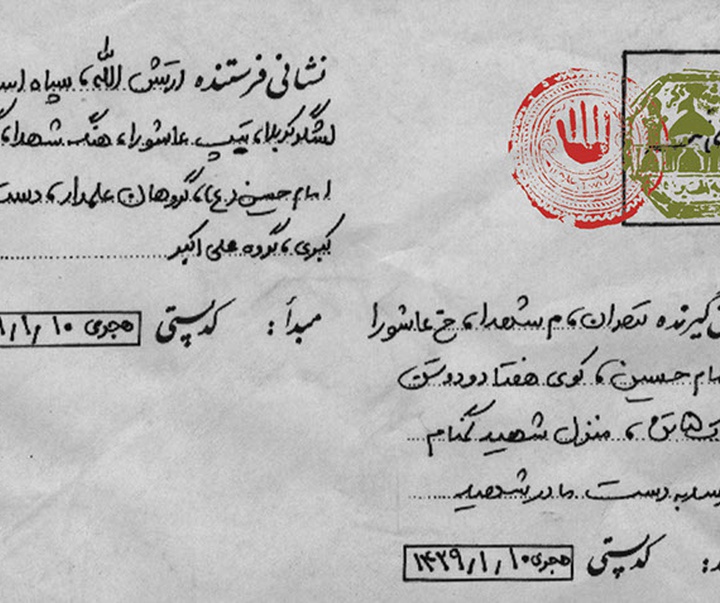 نشانی فرستنده ارتش الله، سپاه
لشگر کربلا، تیپ عاشورا، هنگ شهدا،
امام حسین (ع)، گروهان علمدار، دست
کبری، گروه علی اکبر
مبدأ: کد پستی
هجری ۱۰ / ۱ /
گیرنده تهران، م شهدا، خ عاشورا
امام حسین، کوی هفتاد و دو تن
منزل شهید گمنام
برسد به دست مادر شهید
کد پستی
هجری ۱۰ / ۱ / ۱۴۲۹